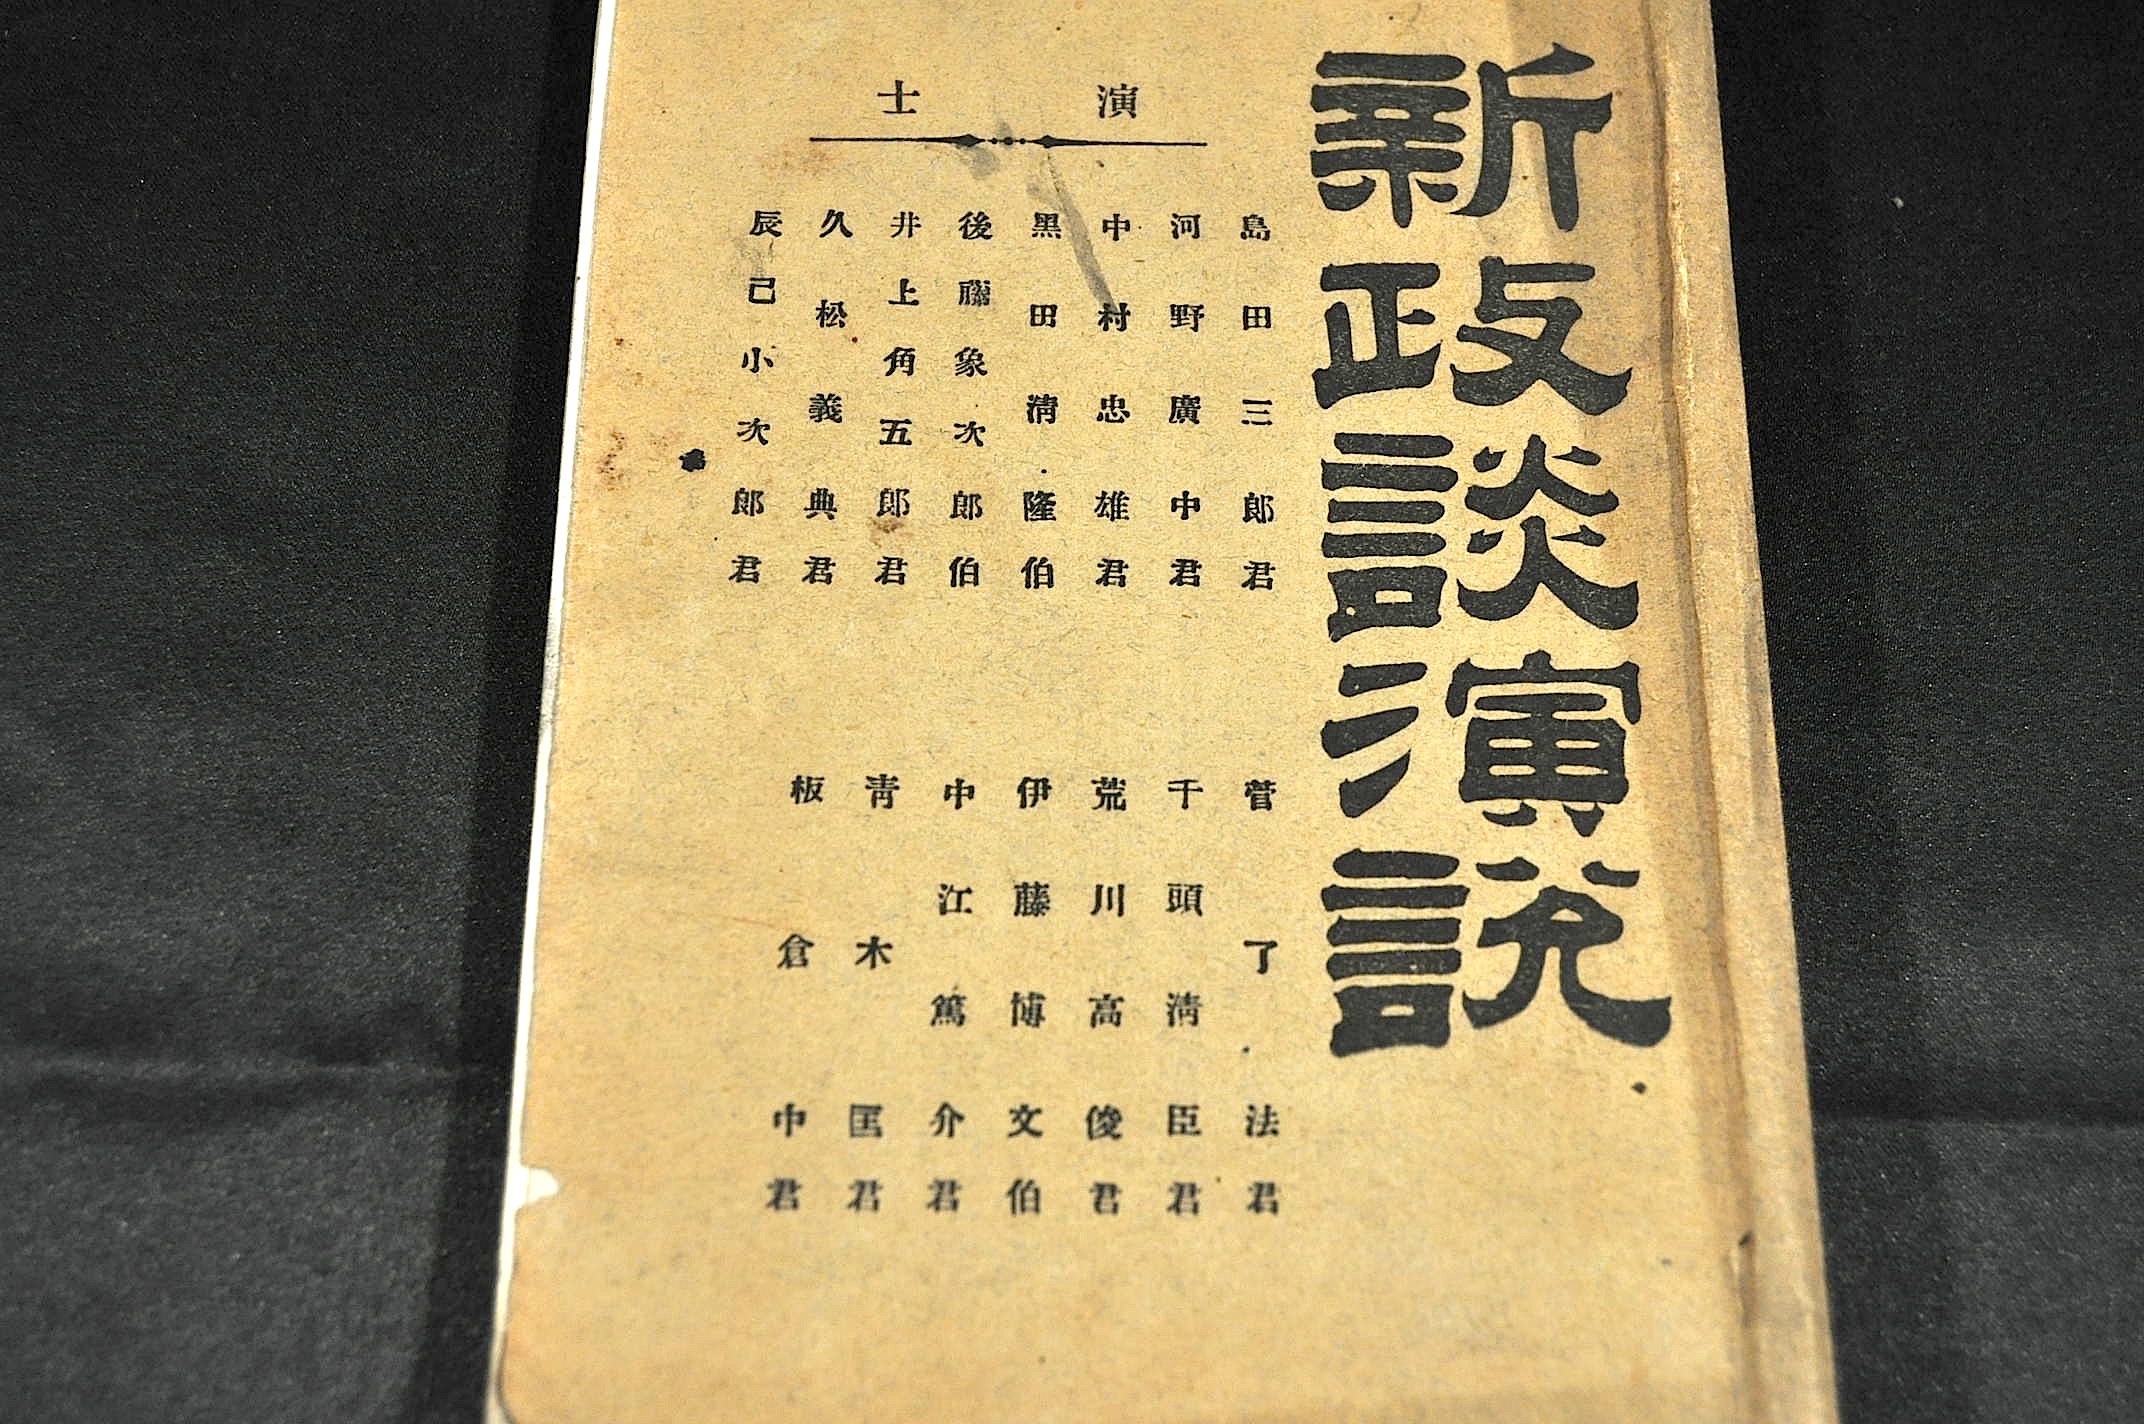 新政談演説
演士
島田三郎君
河野廣中君
中村忠雄君
黑田淸隆伯
後藤象次郎伯
井上角五郎君
久松義典君
辰己小次郎君
菅了法君
千頭淸臣君
荒川高俊君
伊藤博文伯
中江篤介君
靑木匡君
板倉中君